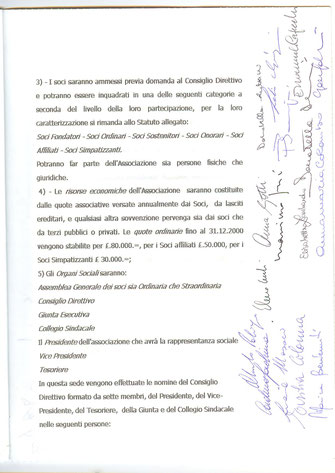 3) - I soci saranno ammessi previa domanda al Consiglio Direttivo
e potranno essere inquadrati in una delle seguenti categorie a
seconda del livello della loro partecipazione, per la loro
caratterizzazione si rimanda allo Statuto allegato:
Soci Fondatori - Soci Ordinari - Soci Sostenitori - Soci Onorari - Soci
Affiliati - Soci Simpatizzanti.
Potranno far parte dell'Associazione sia persone fisiche che
giuridiche.
4) - Le risorse economiche dell'Associazione saranno costituite
dalle quote associative versate annualmente dai Soci, da lasciti
ereditari, e qualsiasi altra sovvenzione pervenga sia dai soci che
da terzi pubblici o privati. Le quote ordinarie fino al 31.12.2000
vengono stabilite per £.80.000.=, per i Soci affiliati £.50.000, per i
Soci Simpatizzanti £ 30.000.=;
5) Gli Organi Sociali saranno:
Assemblea Generale dei soci sia Ordinaria che Straordinaria
Consiglio Direttivo
Giunta Esecutiva
Collegio Sindacale
Il Presidente dell'associazione che avrà la rappresentanza sociale
Vice Presidente
Tesoriere
In questa sede vengono effettuate le nomine del Consiglio
Direttivo formato da sette membri, del Presidente, del Vice-
Presidente, del Tesoriere, della Giunta e del Collegio Sindacale
nelle seguenti persone: